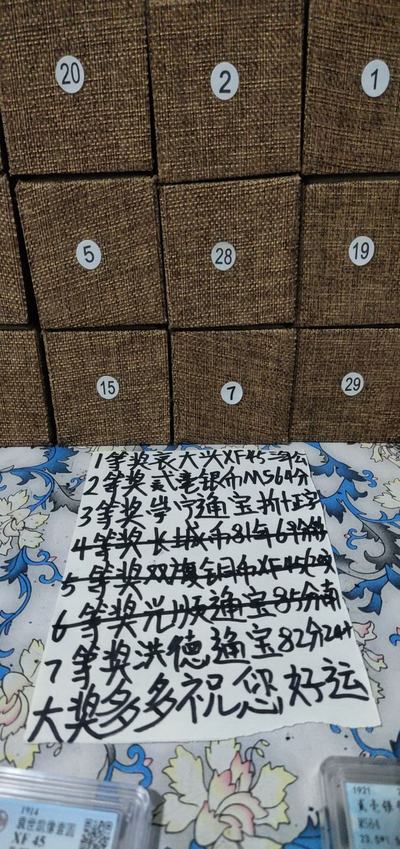 20
2
1
5
28
19
15
7
29
1等奖袁大头XF45
2等奖 老银币MS64分
3等奖 宁通宝
4等奖长城币81年67分
5等奖双旗铜币XF45
6等奖光顺通宝85分南
7等奖洪德通宝82分
大奖多多祝您好运
1914
XF 45
1921
MS64